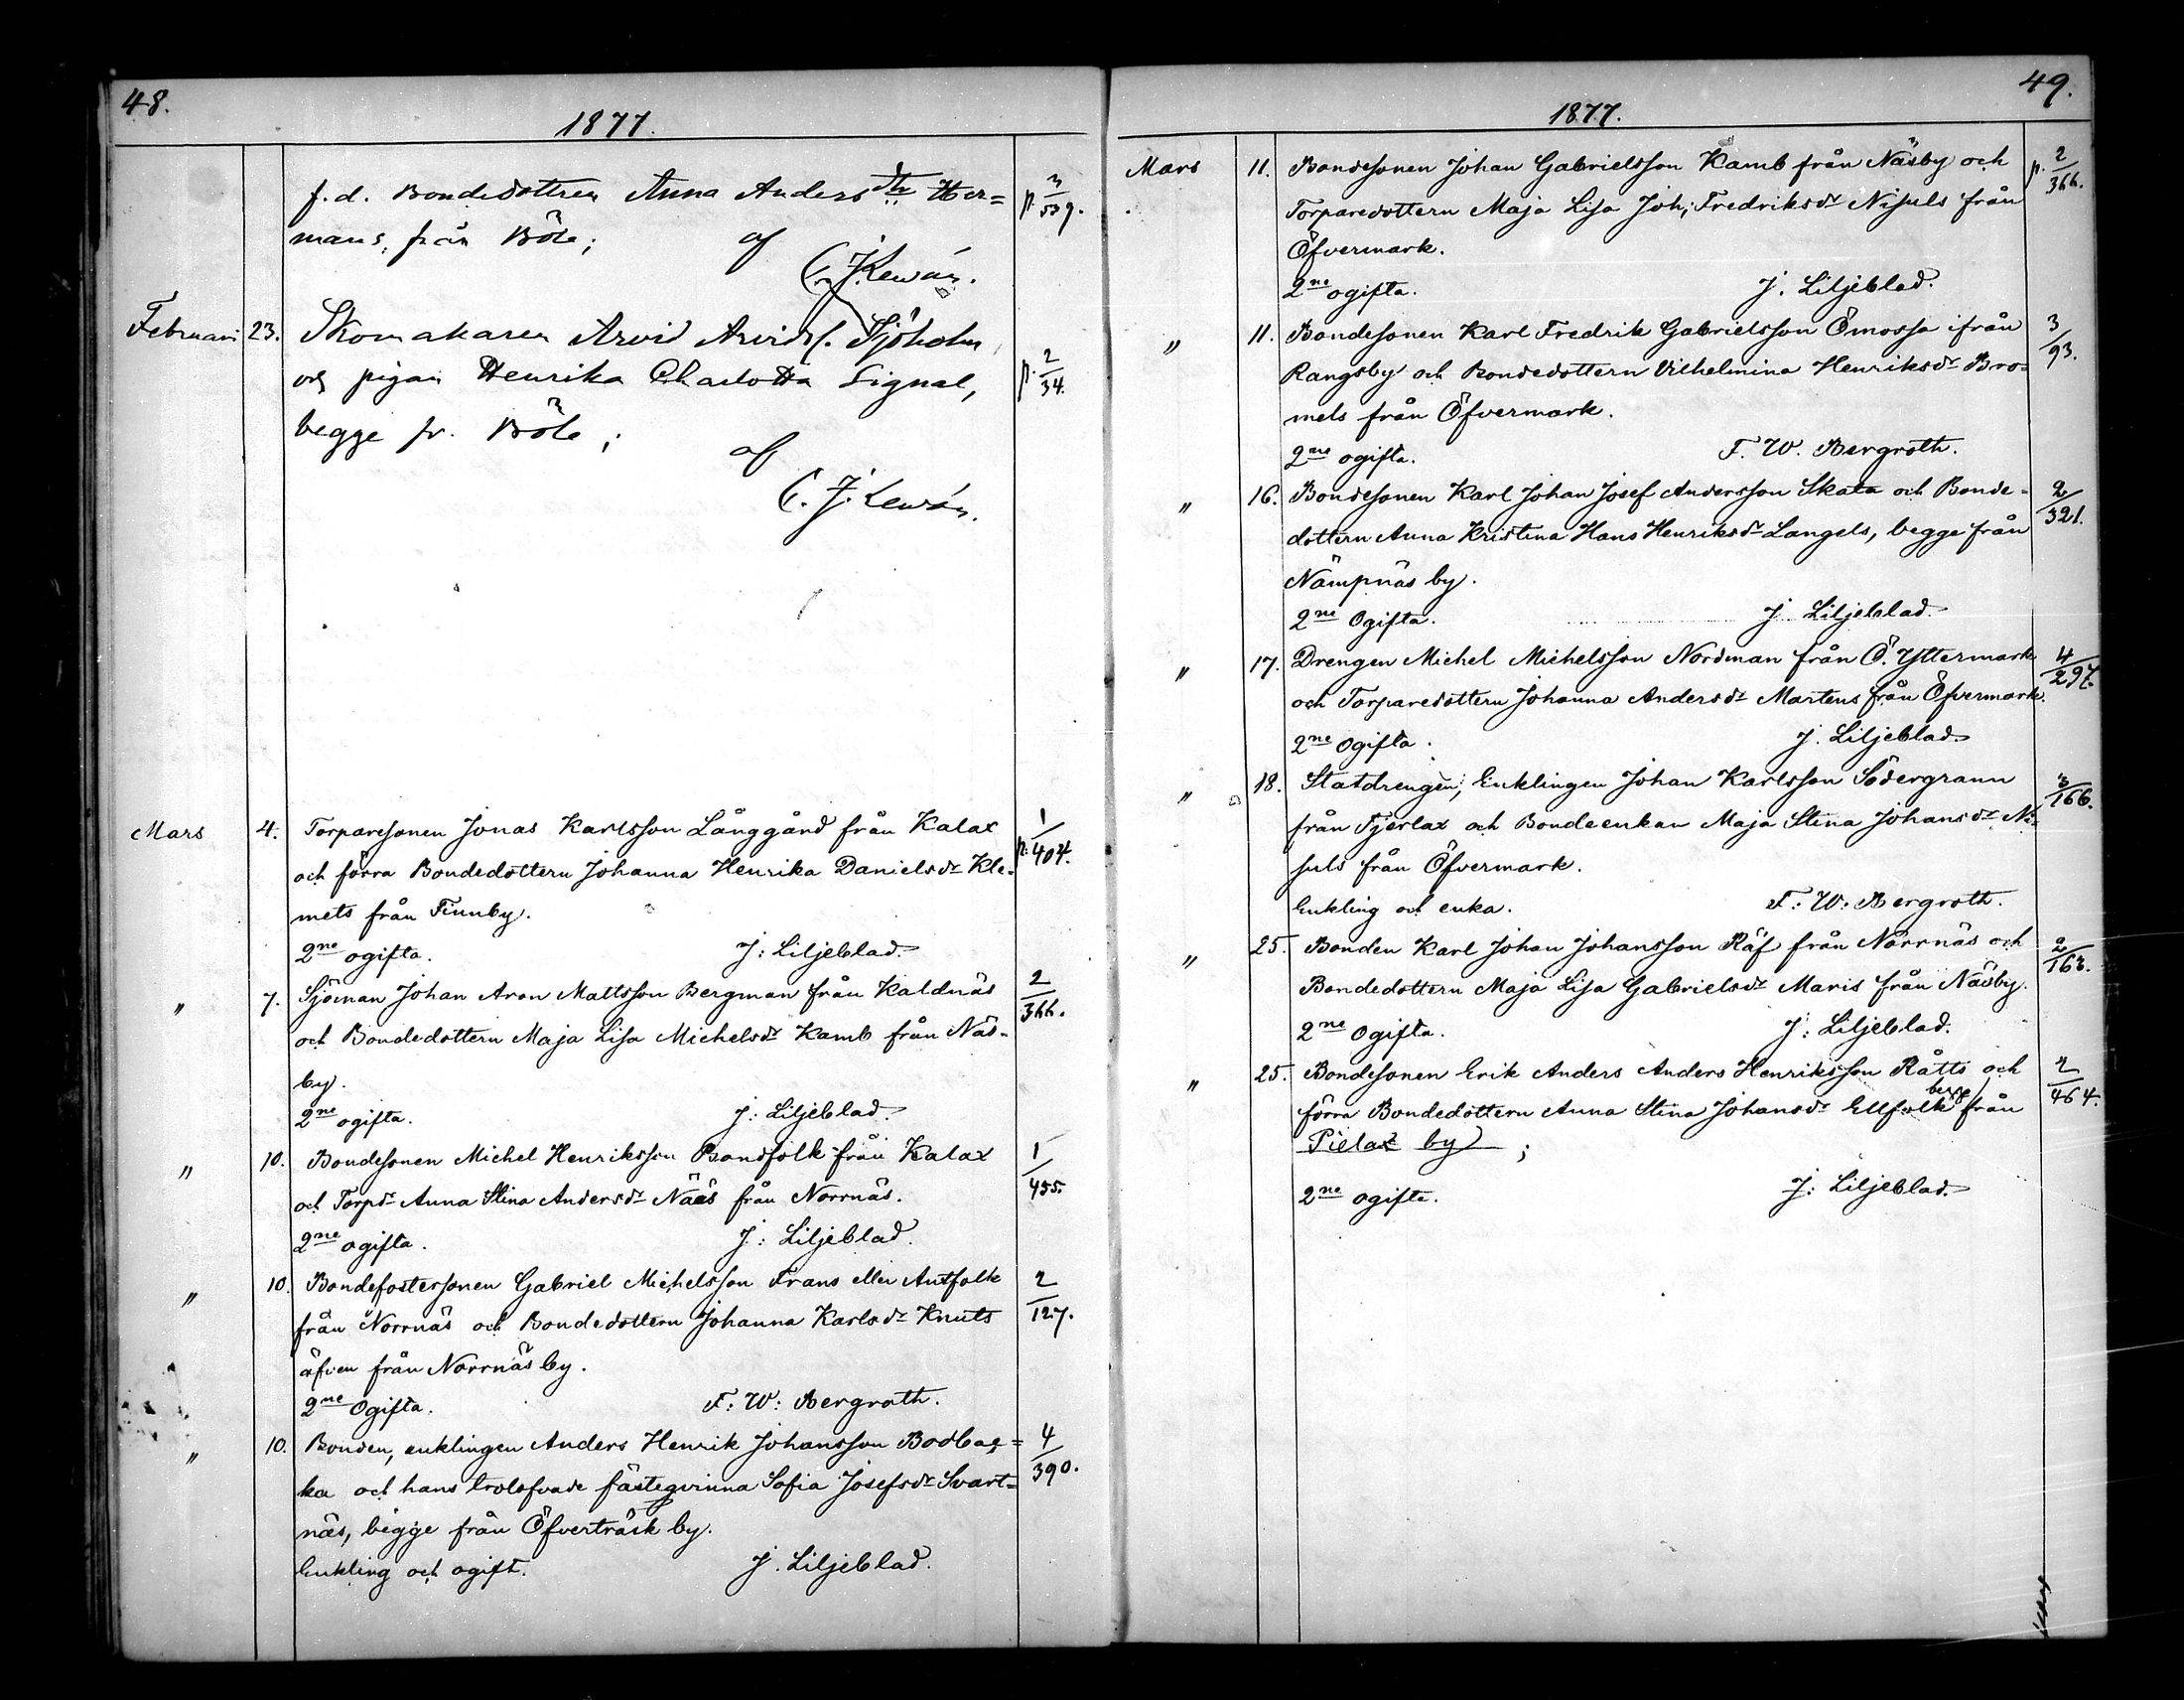 48.
1877.
f. d. Bondedottren Anna Andersdtr Her=
p. 3/539.
mans, från Böle;
af
C. J. Lewón.
Februari 23. Skomakaren Arvid Arvidss. Sjöholm
och pigan Henrika Charlotta Signal,
p. 2/34.
begge fr. Böle;
af
C. J. Lewón.
Mars 4. Torparesonen Jonas Karlsson Långgård från Kalax
och förra Bondedottern Johanna Henrika Danielsdr Kle-
p. 1/404.
mets från Finnby.
2ne ogifta. J: Liljeblad.
" 7. Sjöman Johan Aron Mattsson Bergman från Kaldnäs
2/366.
och Bondedottern Maja Lisa Michelsdr Kamb från Näs-
by.
2ne ogifta. J: Liljeblad.
" 10. Bondesonen Michel Henriksson Bondfolk från Kalax
1/455.
och Torpdr Anna Stina Andersdr Näås från Norrnäs.
2ne ogifta. J: Liljeblad.
" 10. Bondefostersonen Gabriel Michelsson Frans eller Antfolk
2/127.
från Norrnäs och Bondedottern Johanna Karlsdr Knuts
äfven från Norrnäs by.
2ne Ogifta. F: W: Bergroth.
" 10. Bonden, enklingen Anders Henrik Johansson Bodbac=
4/390.
ka och hans trolofvade fästeqvinna Sofia Josefsdr Svart=
näs, begge från Öfverträsk by.
Enkling och ogift. J. Liljeblad.
49.
1877.
Mars 11. Bondesonen Johan Gabrielsson Kamb från Näsby och
p. 2/366.
Torparedottern Maja Lisa Joh; Fredriksdr Nisuls från
Öfvermark.
2ne ogifta. J. Liljeblad.
" 11. Bondesonen Karl Fredrik Gabrielsson Ömossa ifrån
3/93.
Rangsby och Bondedottern Vilhelmina Henriksdr Bro-
mels från Öfvermark.
2ne ogifta. F. W. Bergroth.
" 16. Bondesonen Karl Johan Josef Andersson Skata och Bonde-
2/321.
dottern Anna Kristina Hans Henriksdr Langels, begge från
Nämpnäs by.
2ne Ogifta. J Liljeblad.
" 17. Drengen Michel Michelsson Nordman från Ö. Yttermark
4/297.
och Torparedottern Johanna Andersdr Martens från Öfvermark.
2ne Ogifta. J. Liljeblad.
" 18. Statdrengen, Enklingen Johan Karlsson Södergrann
3/166.
från Tjerlax och Bondeenkan Maja Stina Johansdr Ni-
suls från Öfvermark.
Enkling och enka. F: W: Bergroth.
" 25. Bonden Karl Johan Johansson Räf från Norrnäs och
2/163.
Bondedottern Maja Lisa Gabrielsdr Maris från Näsby.
2ne Ogifta. J: Liljeblad.
" 25. Bondesonen Erik Anders Anders Henriksson Rätts och
2/464.
förra Bondedottern Anna Stina Johansdr Ellfolk begge från
Pielax by;
2ne ogifte. J: Liljeblad.